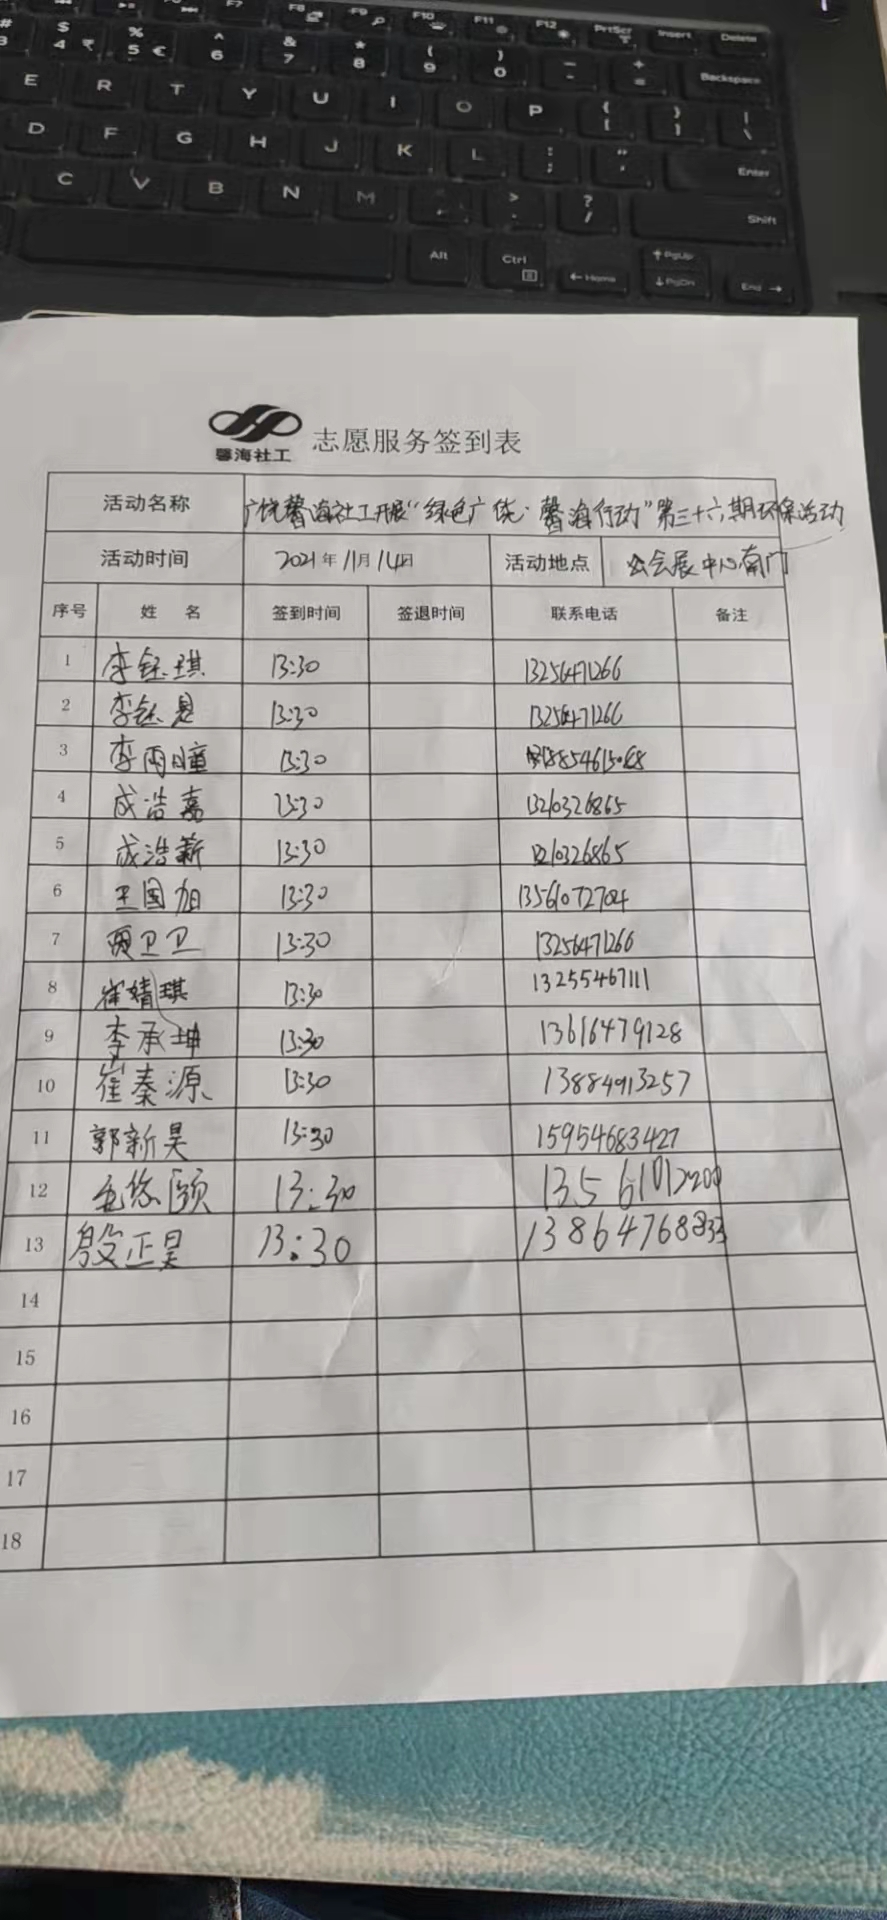 F7 F8 F9 F10 F11 F12 PrtScr Insert Delete
# 3 $ 4 ₹ % 5 € ^ 6 & 7 * 8 ( 9 ) 0 _ - + = Backspace
E R T Y U I O P { [ } ] | \
D F G H J K L : ; " ' Enter
C V B N M > . ? / Shift
Alt Ctrl ↑ PgUp
← Home ↓ PgDn End →
馨海社工 志愿服务签到表
活动名称 广饶馨海社工开展“绿色广饶·馨海行动”第三十六期环保活动
活动时间 2021年11月14日 活动地点 会展中心南门
序号 姓名 签到时间 签退时间 联系电话 备注
1 李钰琪 13:30 13256471266
2 李钰恩 13:30 13256471266
3 李雨瞳 13:30
4 成浩嘉 13:30 13210326865
5 成浩薪 13:30 13210326865
6 王国旭 13:30 13561072704
7 贾卫卫 13:30 13256471266
8 崔婧琪 13:30 13255467111
9 李承坤 13:30 13616479128
10 崔秦源 13:30 13884913257
11 郭新昊 13:30 15954683427
12 13:30
13 殷正昊 13:30
14
15
16
17
18